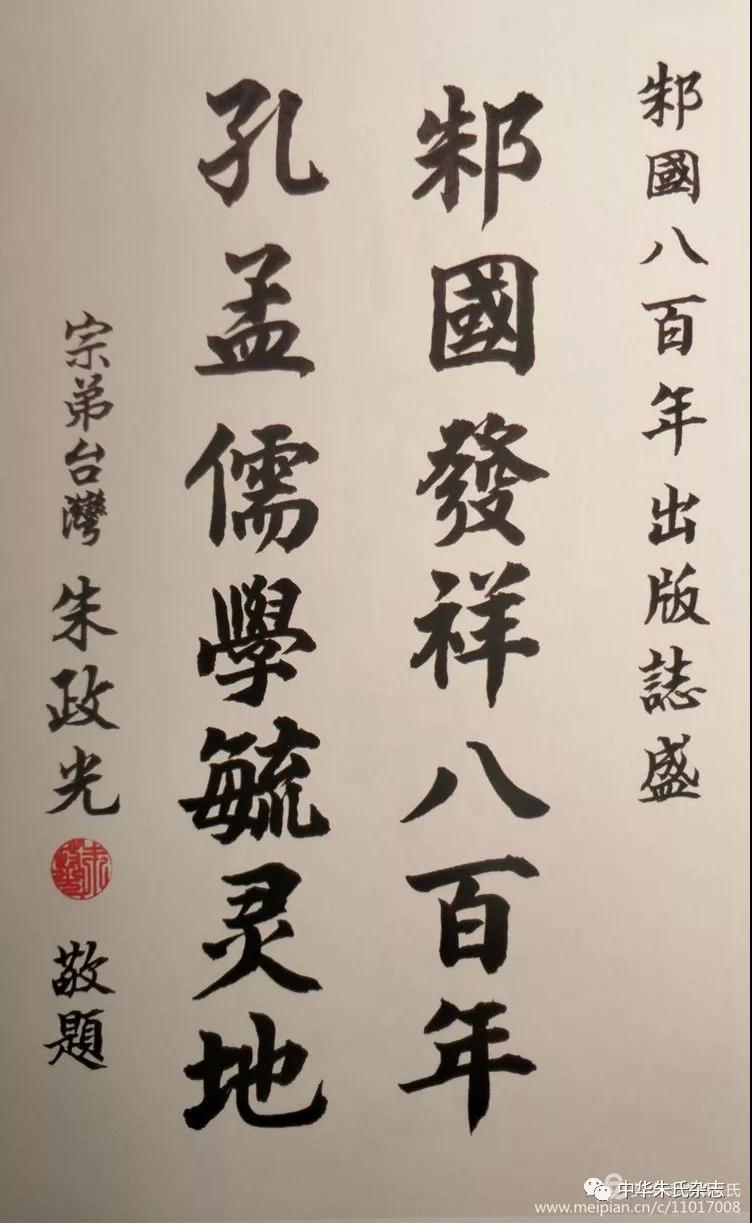 邾國八百年出版誌盛
邾國發祥八百年
孔孟儒學毓灵地
宗弟台灣朱政光敬題
中华朱氏杂志
www.meipian.cn/c/11017008